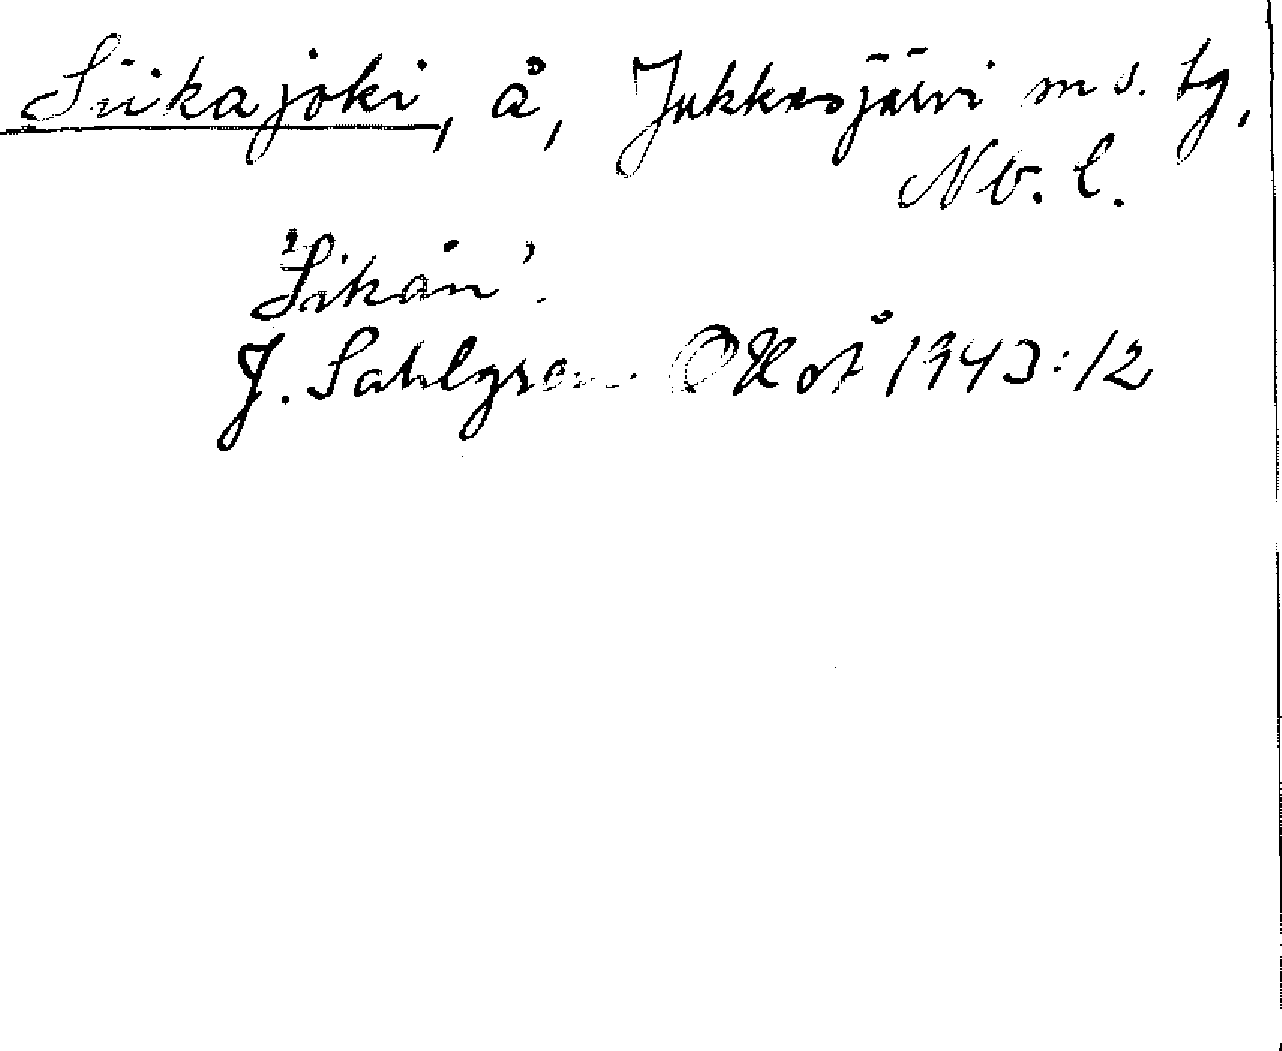 Siikajoki, å, Jukkasjärvi m s. tg,
Nb. l.
'Sikån'.
J. Sahlgren OKot 1943:12